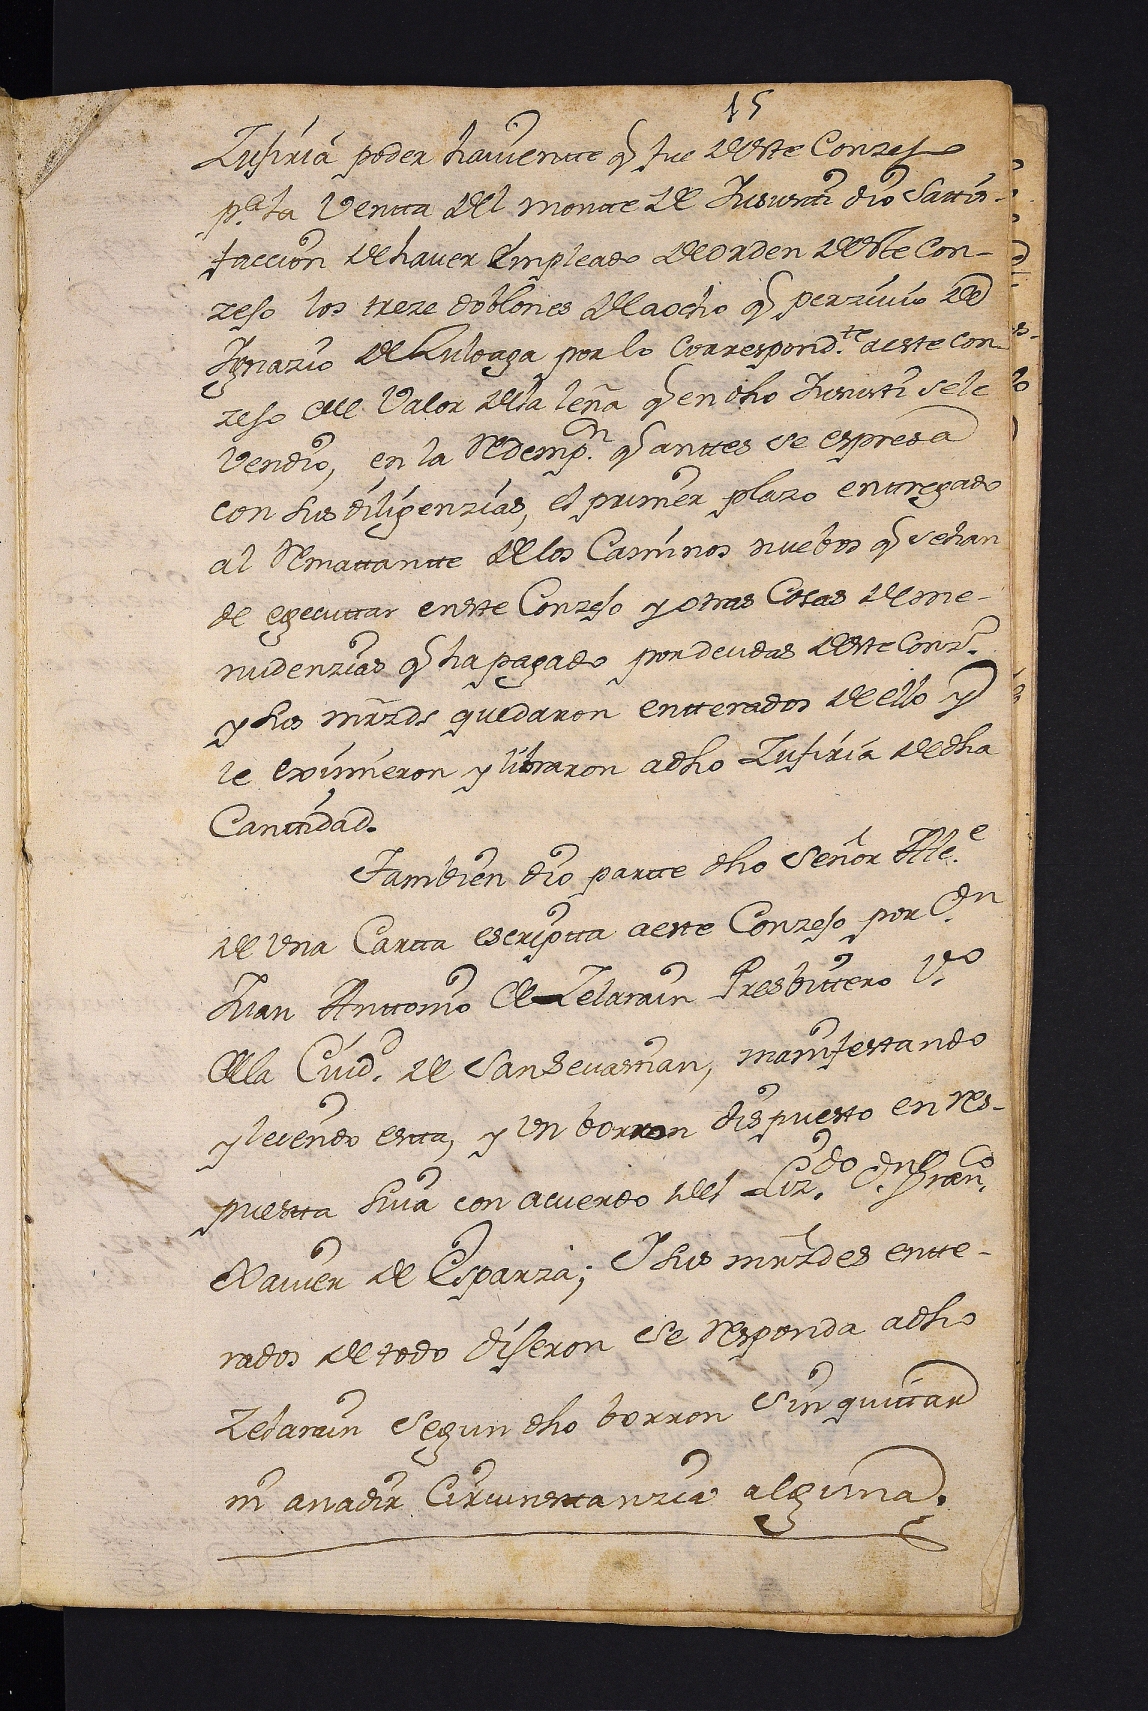 15
Zufiria poder havientte q fue de este Conzejo
p.ª la Ventta del montte de Jusustti dio Sattis-
faccion de haver Empleado de orden de este Con-
zejo los treze doblones de a ocho q perzivio de
Ygnazio de Zuloaga por lo Correspond.te a este con
zejo del Valor de la leña q en dho Jusustti se le
Vendio, en la Redemp.n q anttes se espresa
con sus diligenzias, el primer plazo enttregado
al Remattantte de los Caminos nuebos q se han
de egecuttar en este Conzejo y otras Cosas de me-
nudenzias q ha pagado por deudas de este Conz.º
y sus mrzds quedaron entterados de ello y
le eximieron y libraron a dho Zufiria de dha
Canttidad.
Tambien dio partte dho Señor Alle.e
de Una Cartta escriptta a este Conzejo por D.n
Juan Anttonio de Zelarain Presbittero V.º
de la Ciud.d de San Sevastian, manifestando
y leiendo estta, y un borron dispuesto en res-
puestta suia con acuerdo del Liz.do D.n Fran.co
Xavier de Esparza; I sus mrzdes ente-
rados de todo dijeron Se Responda a dho
Zelarain Segun dho borron Sin quittar
ni anadir Circunsttanzia alguna.